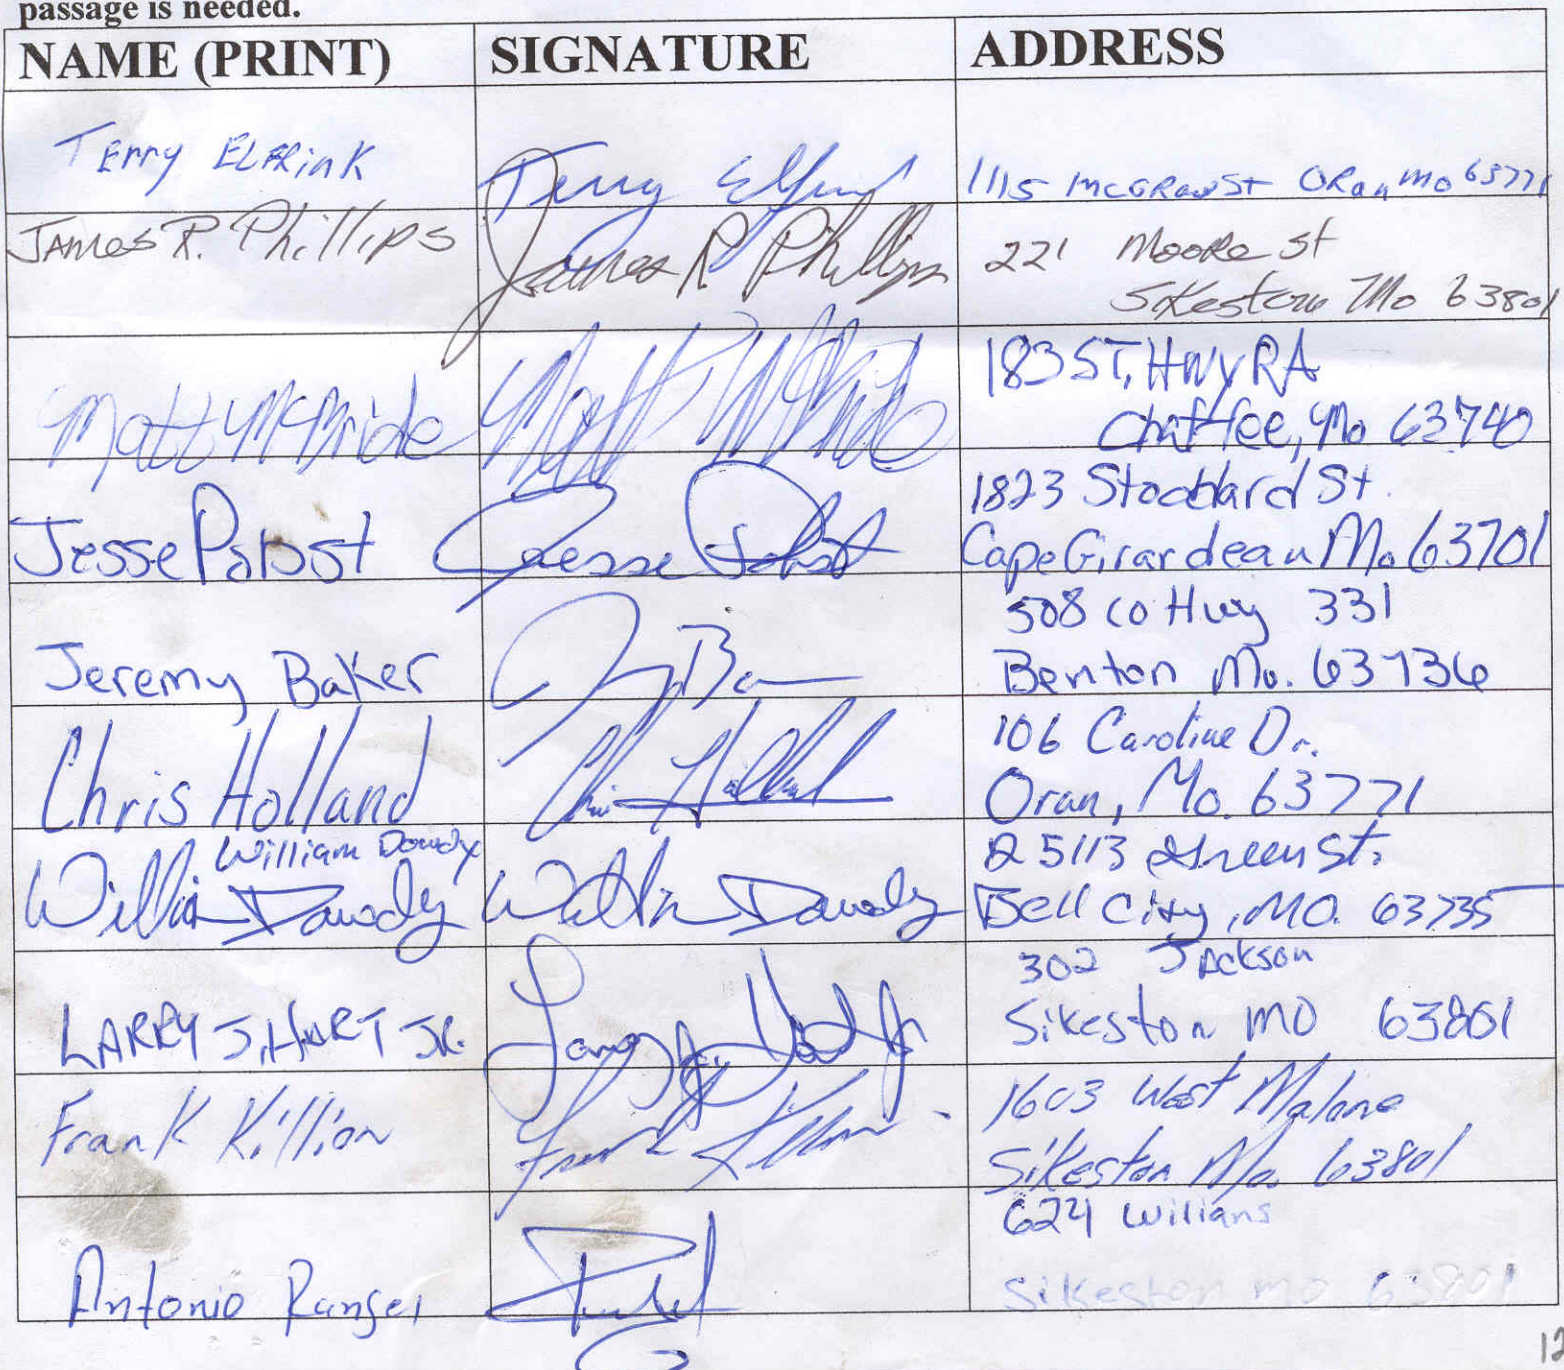 passage is needed.
NAME (PRINT) SIGNATURE ADDRESS
Terry ELFRink Terry Elfrink 1115 McGRawSt ORan mo 63771
JAmes R. Phillips James R Phillips 221 Moore st
Sikeston Mo 63801
Matt McBride Matt McBride 183 ST, HWY RA
Chaffee, Mo 63740
Jesse Pabst Jesse Pabst 1823 Stoddard St.
Cape Girardeau Mo 63701
Jeremy Baker 508 co Hwy 331
Benton Mo. 63736
Chris Holland Chris Holland 106 Caroline Dr.
Oran, Mo. 63771
William Dowdy 25113 Green St.
William Dowdy William Dowdy Bell City, MO. 63735
302 Jackson
LARRY J. HART JR. Larry J. Hart Jr Sikeston MO 63801
Frank Killion Frank Killion 1603 West Malone
Sikeston Mo. 63801
624 Willians
Antonio Rangel Sikeston mo 63801
12